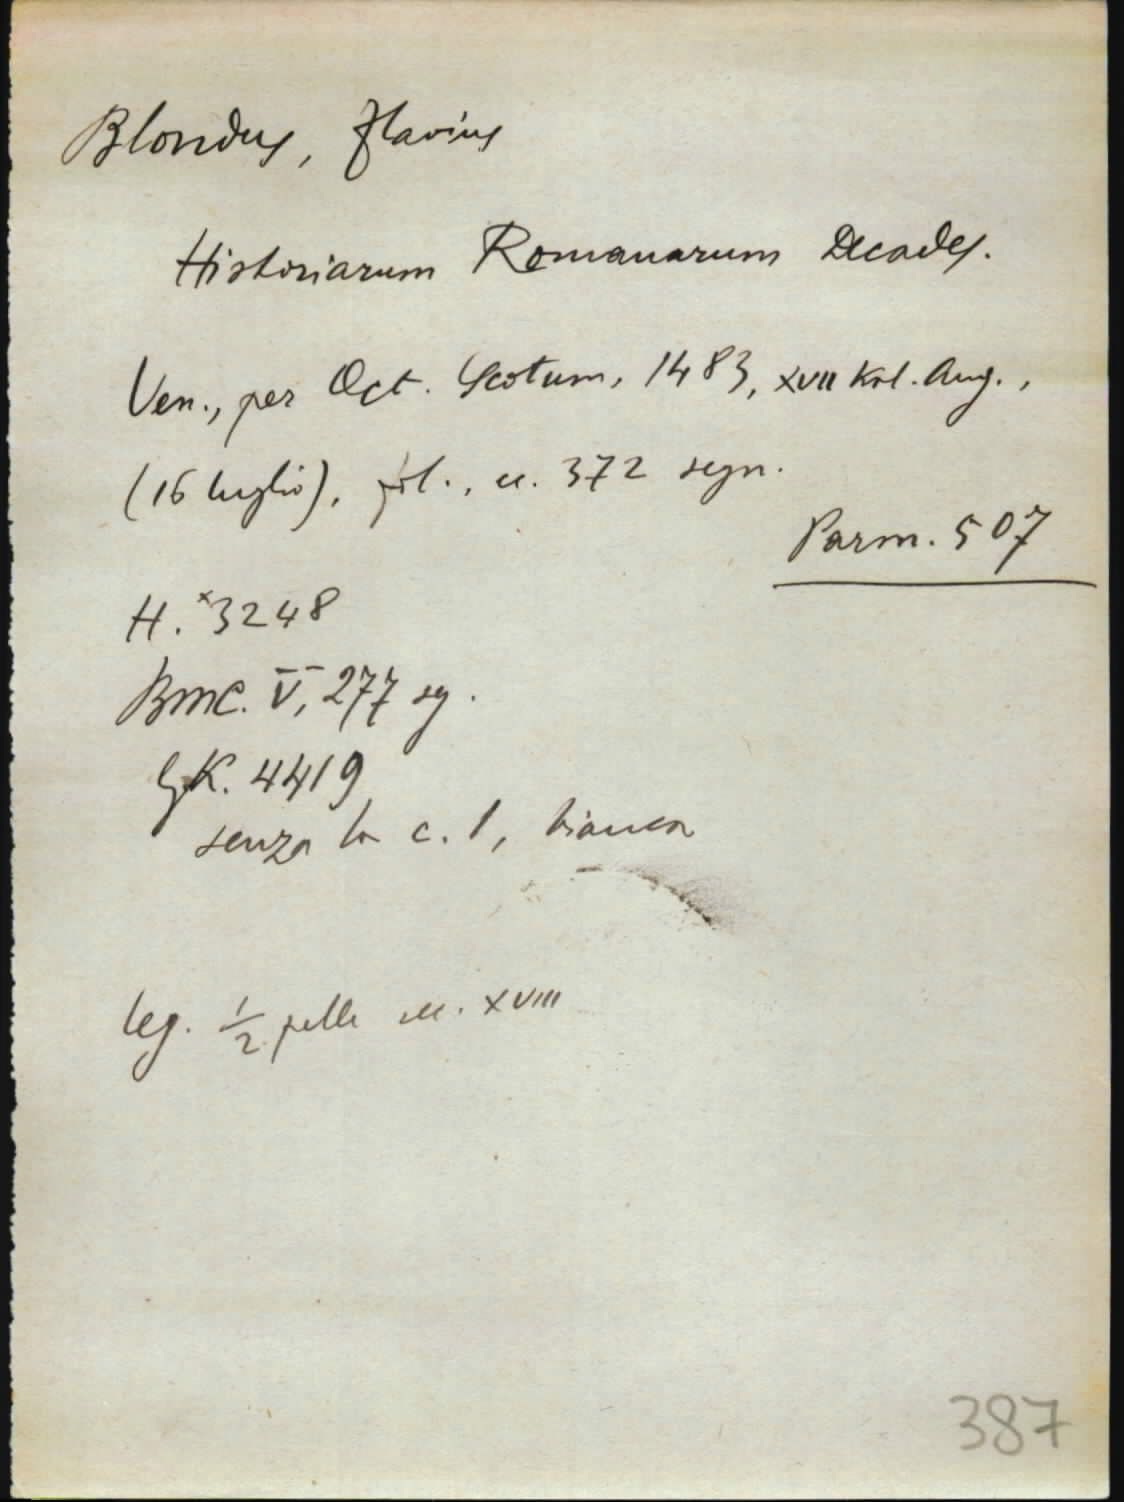 Blondus, Flavius
Historiarum Romanarum Decades.
Ven., per Oct. Scotum, 1483, XVII Kal. Aug.,
(16 luglio), fol., cc. 372 segn.
Parm. 507
H. *3248
BMC. V, 277 sg.
GK. 4419
senza la c. 1, bianca
leg. 1/2 pelle sec. XVIII
387